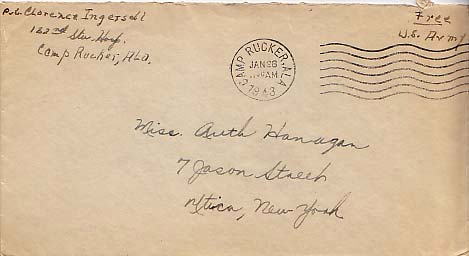 Pvt. Clarence Ingersoll
Free
U.S. Army
Sta. Hosp.
Camp Rucker, Ala.
CAMP RUCKER, ALA
JAN 26
AM
1943
Miss. Ruth Hanagan
7 Jason Street
Utica, New York